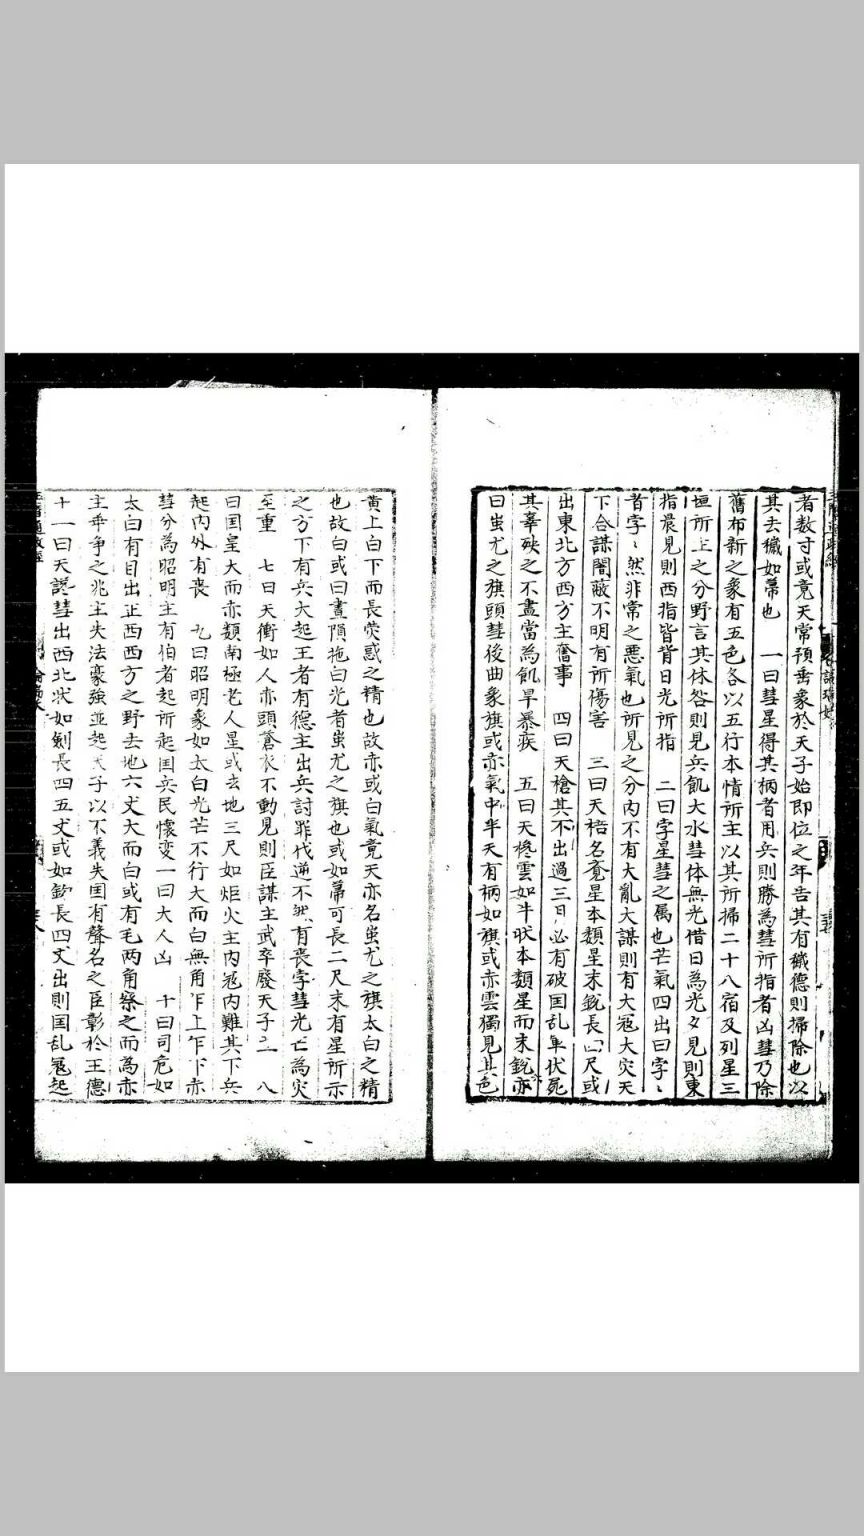 者数寸或竟天常預垂象於天子始即位之年告其有穢德則掃除也以
其去穢如帚也　一曰彗星得其柄者用兵則勝為彗所指者凶彗乃除
舊布新之象有五色各以五行本情所主以其所掃二十八宿及列星三
垣所主之分野言其休咎則見兵飢大水彗体無光借日為光夕見則東
指晨見則西指皆背日光所指　二曰孛星彗之属也芒氣四出曰孛〻
者孛〻然非常之悪氣也所見之分内不有大亂大謀則有大冦大灾天
下合謀闇蔽不明有所傷害　三曰天棓名覓星本類星末銳長尺或
出東北方西方主奮事　四曰天槍其不出過三日必有破国乱軍伏死
其辜殃之不盡當為飢旱暴疾　五曰天攙雲如牛状本類星而末銳亦
曰蚩尤之旗頭彗後曲象旗或亦氣中半天有柄如旗或赤雲獨見其色
黄上白下而長熒惑之精也故亦或白氣竟天亦名蚩尤之旗太白之精
也故白或曰晝隕拖白光者蚩尤之旗也或如帚可長二尺末有星所示
之方下有兵大起王者有德主出兵討罪伐逆不然有喪孛彗光芒為灾
至重　七曰天衝如人亦頭蒼衣不動見則臣謀主武卒廢天子亡　八
曰国皇大而亦類南極老人星或去地三尺如炬火主内冦内難其下兵
起内外有喪　九曰昭明象如太白光芒不行大而白無角乍上乍下赤
彗分為昭明主有伯者起所起国兵民懐变一曰大人凶　十曰司危如
太白有目出正西西方之野去地六丈大而白或有毛两角察之而為亦
主乖争之兆主失法豪強並起天子以不義失国有聲名之臣彰於王德
十一曰天讒彗出西北状如剣長四五丈或如鈎長四丈出則国乱冦起